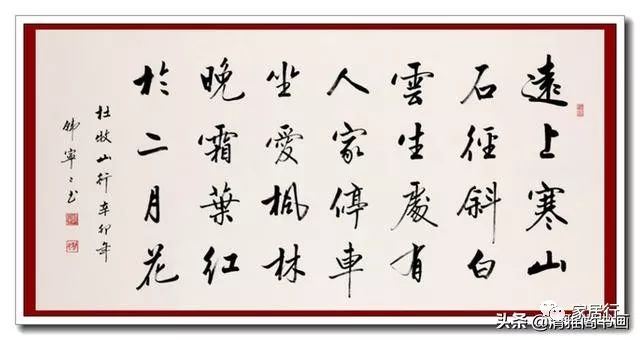 遠上寒山
石徑斜白
雲生處有
人家停車
坐愛楓林
晚霜葉紅
於二月花
杜牧山行辛卯年
寧〻书
家居行
头条@清雅尚书画